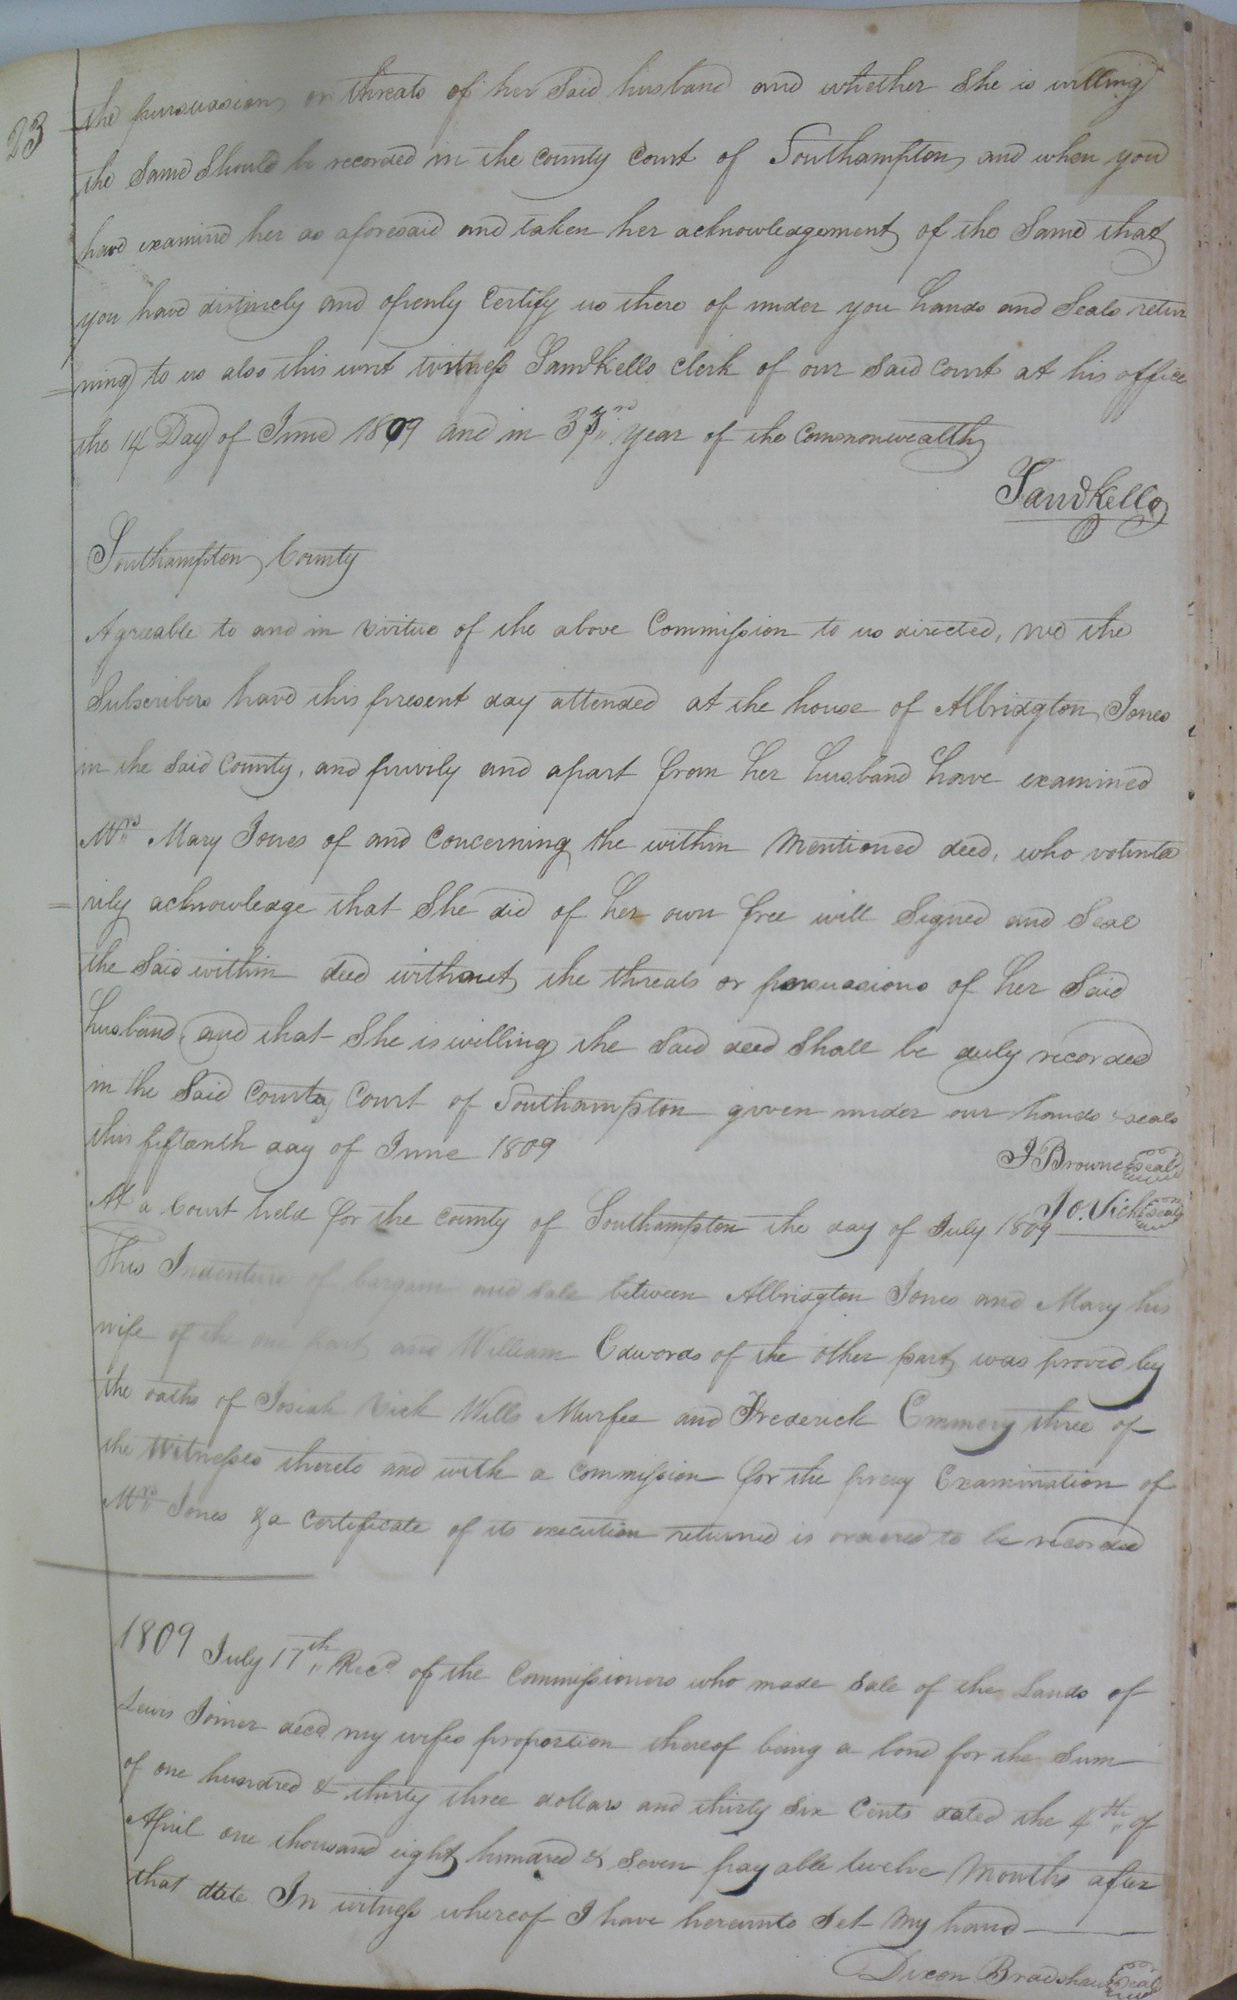 23
the pursuasions or threats of her Said husband and whether She is willing
the Same Should be recorded in the county Court of Southampton and when you
have examind her as aforesaid and taken her acknowledgement of the Same that
you have distinctly and openly Certify us there of under you hands and Seals retur
ning to us also this writ witness Saml Kello clerk of our Said Court at his office
the 14 Day of June 1809 and in 33rd year of the Commonwealth
Saml Kello
Southampton County
Agreeable to and in virtue of the above Commission to us directed, we the
Subscribers have this present day attended at the house of Albridgton Jones
in the Said County, and privily and apart from her husband have examined
Mrs Mary Jones of and Concerning the within Mentioned deed, who volunta
rily acknowledge that She did of her own free will Signed and Seal
the Said within deed without the threats or persuasions of her Said
husband and that She is willing the Said deed Shall be duly recorded
in the Said County Court of Southampton given under our hands & seals
this fifteenth day of June 1809
J Browne seal
Jo. Vick seal
At a Court held for the County of Southampton the day of July 1809
This Indenture of bargain and sale between Albridgton Jones and Mary his
wife of the one part and William Edwards of the other part was proved by
the oaths of Josiah Vick Wills Murfee and Frederick Emmery three of
the Witnesses thereto and with a commission for the privy Examination of
Mrs Jones & a Certificate of its execution returned is ordered to be recorded
1809 July 17th Recd of the Commissioners who made Sale of the Lands of
Lewis Joiner decd my wifes proportion thereof being a bond for the Sum
of one hundred & thirty three dollars and thirty Six Cents dated the 4th of
April one thousand eight hundred & Seven payable twelve Months after
that date In witness whereof I have hereunto Set my hand
Dixon Bradshaw Seal